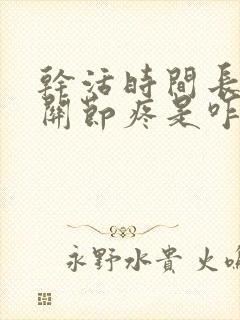 幹活時間長
關節疼是咋
永野水貴 火鳴